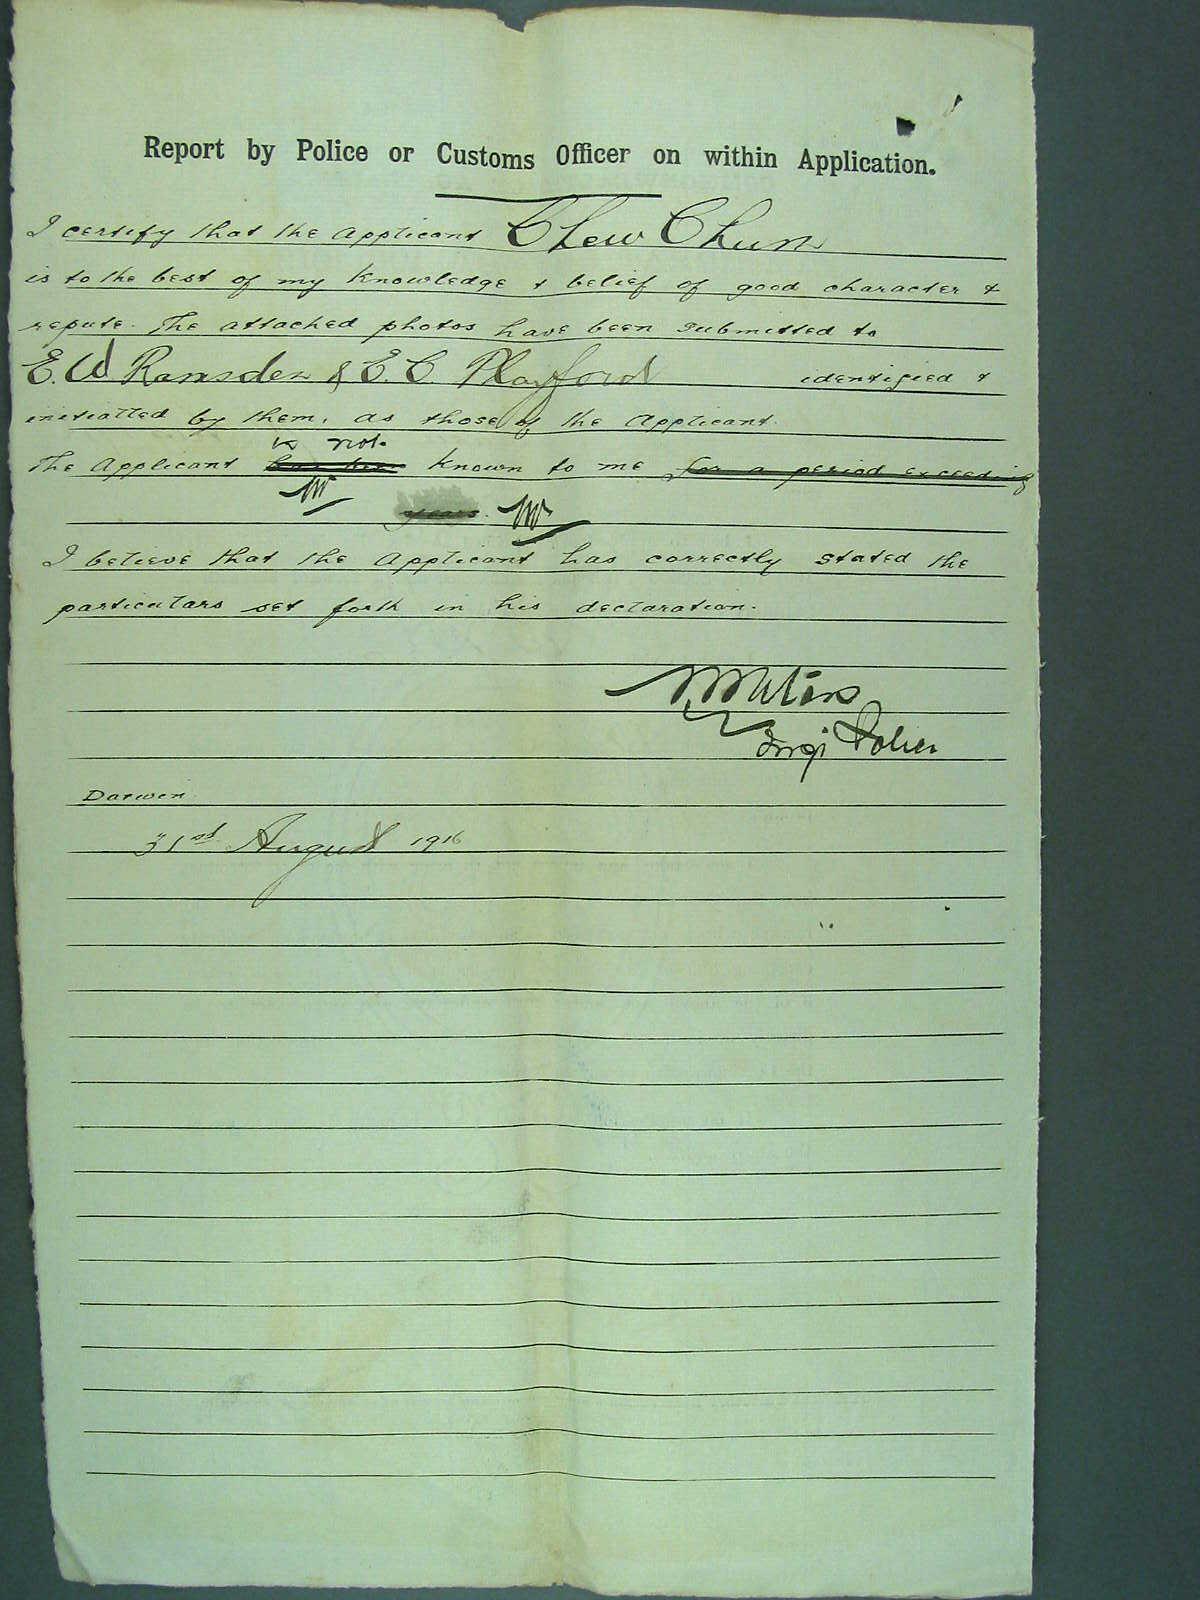 Report by Police or Customs Officer on within Application.
I certify that the Applicant Chew Chun
is to the best of my knowledge & belief of good character &
repute. The attached photos have been submitted to
E. W Ramsden & E. C. Playford identified &
initialled by them, as those of the Applicant.
is not
The Applicant known to me for a period exceeding
years.
I believe that the Applicant has correctly stated the
particulars set forth in his declaration.
Waters
Insp Police
Darwin
31st August 1916